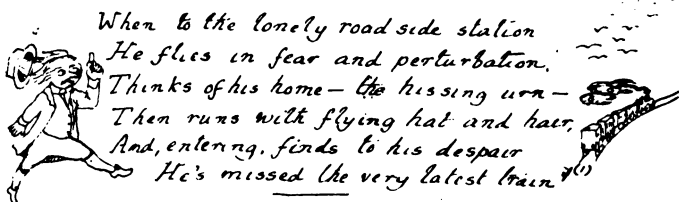 When to the lonely road side station
He flies in fear and perturbation,
Thinks of his home — the hissing urn —
Then runs with flying hat and hair,
And, entering, finds to his despair
He's missed the very latest train" (1)